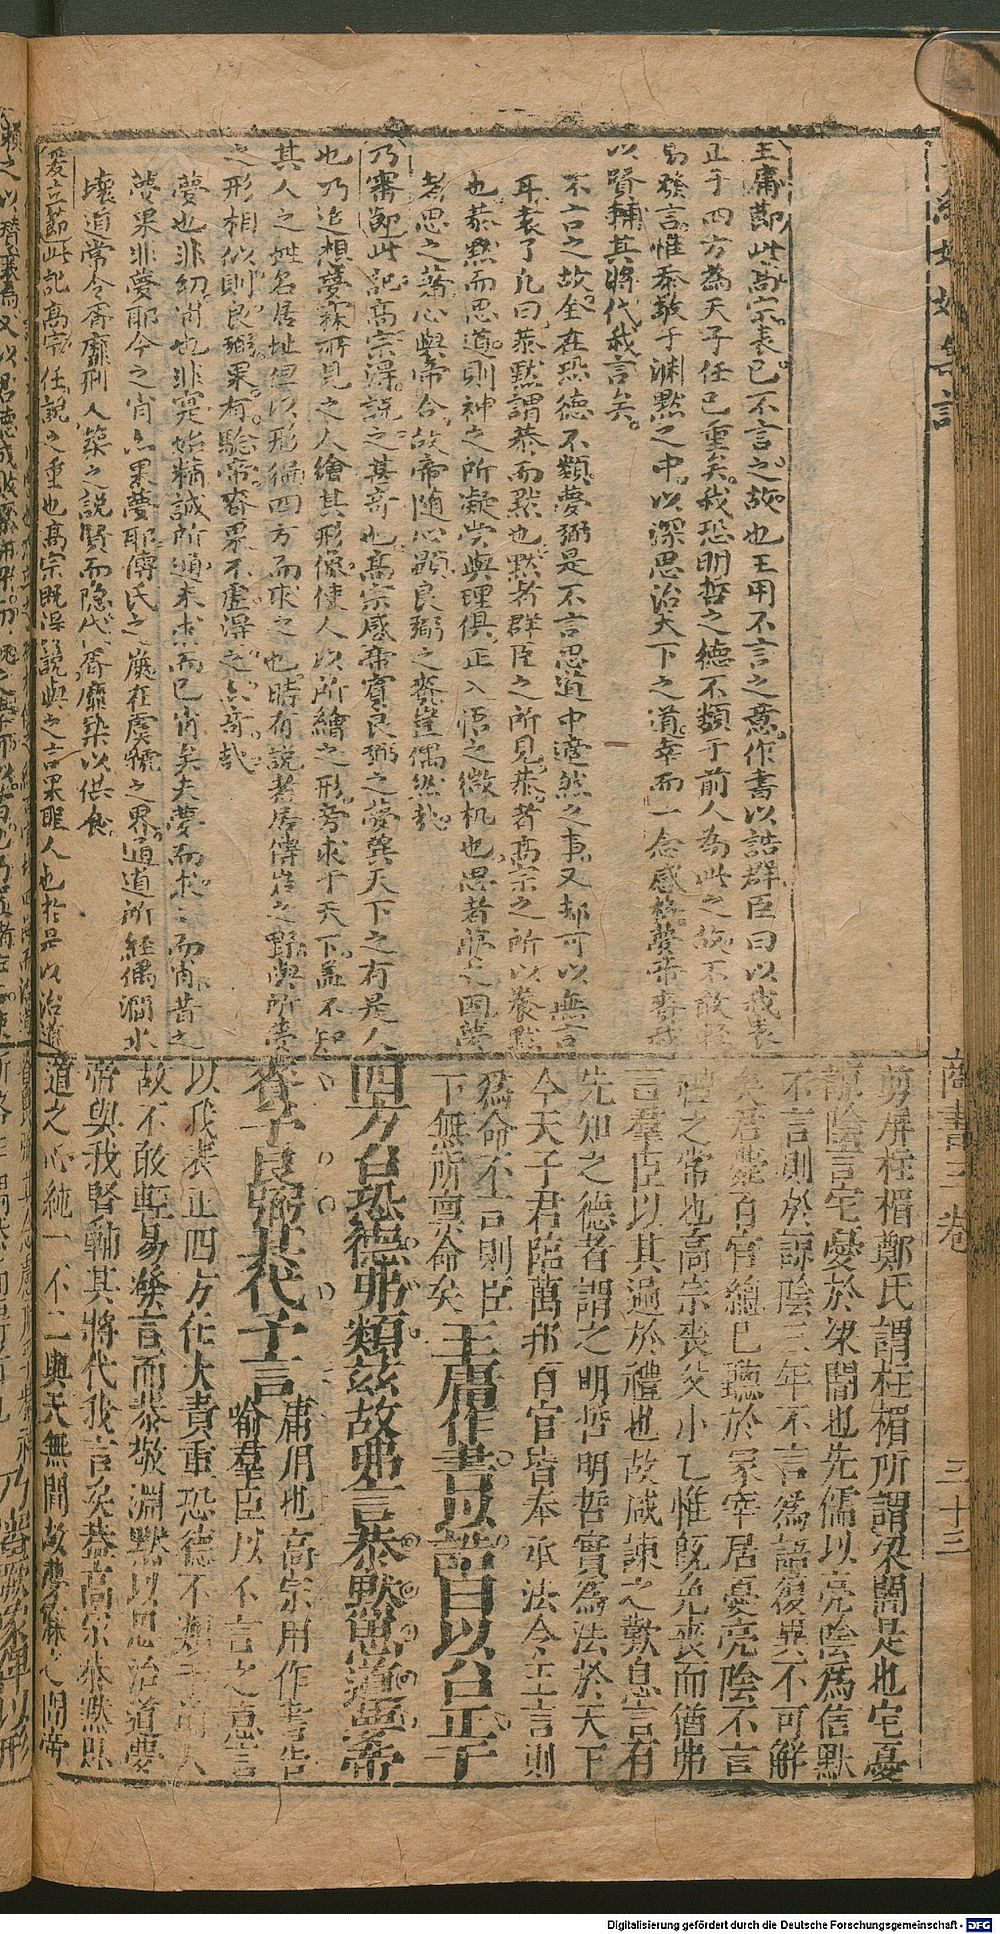 王庸節此高宗表已不言之故也王用不言之意作書以誥群臣曰以我表
正于四方為天子任已重矣我恐明哲之德不類于前人為此之故不敢輕
易發言惟恭敬于渊默之中以深思治天下之道幸而一念感格夢帝賚我
以賢輔其將代我言矣
不言之故全在恐德不類夢弼是不言思道中適然之事又却可以無言
耳袁了凡曰恭默謂恭而默也默者群臣之所見恭者高宗之所以養默
也恭默而思道則神之所凝常與理俱正入悟之微机也思者夢之因夢
者思之蕩心與帝合故帝随心顕良弼之賚豈偶然哉
乃審節此記高宗得說之甚奇也高宗感帝賚良弼之夢冀天下之有是人
也乃追想夢寐所見之人繪其形像使人以所繪之形旁求于天下盖不知
其人之姓名居址但以形徧四方而求之也時有說者居傅岩之野與所夢
之形相似則良弼果有驗帝賚果不虛得之亦奇哉
夢也非幻肖也非 始精誠所通未求而已肖矣夫夢而求〻而肖昔之
夢果非夢耶今之肖亦果夢耶傅氏之巖在虞虢之界通道所經偶澗水
壞道常令胥靡刑人築之說賢而隐代胥靡築以供食
爰立節此記高宗任說之重也高宗既得說與之言果聖人也於是以治道
商書三卷 三十三
剪屏柱楣鄭氏謂柱楣所謂梁闇是也宅憂
諒陰言宅憂於梁闇也先儒以亮陰爲信默
不言則於諒陰三年不言爲語復異不可解
矣君薨百官總已聽於冢宰居憂亮陰不言
禮之常也高宗喪父小乙惟既免喪而猶弗
言羣臣以其過於禮也故咸諫之歎息言有
先知之德者謂之明哲明哲實為法於天下
今天子君臨萬邦百官皆奉承法令王言則
爲命不言則臣下無所禀命矣
王庸作書以誥曰以台正于
四方台恐德弗類茲故弗言恭默思道夢帝
賚予良弼其代予言
庸用也高宗用作書告
喻羣臣以不言之意言
以我表正四方任大責重恐德不類于前人
故不敢輕易發言而恭敬淵默以思治道夢
帝與我賢輔其將代我言矣葢高宗恭默思
道之心純一不二與天無間故夢寐之間帝
Digitalisierung gefördert durch die Deutsche Forschungsgemeinschaft - DFG